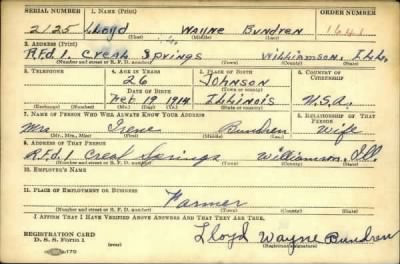 SERIAL NUMBER 1. NAME (Print) ORDER NUMBER
2125 Lloyd Wayne Bundren 1641
2. ADDRESS (Print)
R.F.d 1. Creal Springs Williamson, Ill.
(Number and street or R. F. D. number) (Town) (County) (State)
3. TELEPHONE 4. AGE IN YEARS 5. PLACE OF BIRTH 6. COUNTRY OF CITIZENSHIP
26 Johnson
DATE OF BIRTH (Town or county)
Feb 19 1914 Illinois U.S.A.
(Exchange) (Number) (Mo.) (Day) (Yr.) (State or country)
7. NAME OF PERSON WHO WILL ALWAYS KNOW YOUR ADDRESS 8. RELATIONSHIP OF THAT PERSON
Mrs Irene Bundren Wife
(Mr., Mrs., Miss) (First) (Middle) (Last)
9. ADDRESS OF THAT PERSON
R.F.d 1 Creal Springs Williamson, Ill.
(Number and street or R. F. D. number) (Town) (County) (State)
10. EMPLOYER'S NAME
11. PLACE OF EMPLOYMENT OR BUSINESS
Farmer
(Number and street or R. F. D. number) (Town) (County) (State)
I AFFIRM THAT I HAVE VERIFIED ABOVE ANSWERS AND THAT THEY ARE TRUE.
REGISTRATION CARD
D. S. S. Form 1 (over)
Lloyd Wayne Bundren
(Registrant's signature)